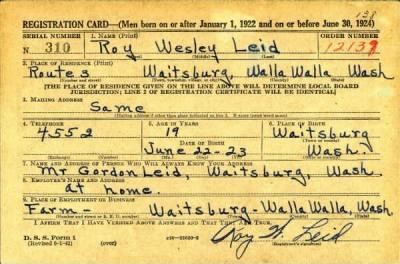 138
REGISTRATION CARD—(Men born on or after January 1, 1922 and on or before June 30, 1924)
SERIAL NUMBER 1. NAME (Print) ORDER NUMBER
N 310 Roy Wesley Leid 12139
(First) (Middle) (Last)
2. PLACE OF RESIDENCE (Print)
Route 3 Waitsburg, Walla Walla Wash
(Number and street) (Town, township, village, or city) (County) (State)
[THE PLACE OF RESIDENCE GIVEN ON THE LINE ABOVE WILL DETERMINE LOCAL BOARD
JURISDICTION; LINE 2 OF REGISTRATION CERTIFICATE WILL BE IDENTICAL]
3. MAILING ADDRESS
Same
[Mailing address if other than place indicated on line 2. If same insert word same]
4. TELEPHONE 5. AGE IN YEARS 6. PLACE OF BIRTH
4552 19 Waitsburg
DATE OF BIRTH (Town or county)
June 22-23 Wash.
(Exchange) (Number) (Mo.) (Day) (Yr.) (State or country)
7. NAME AND ADDRESS OF PERSON WHO WILL ALWAYS KNOW YOUR ADDRESS
Mr Gordon Leid, Waitsburg, Wash.
8. EMPLOYER'S NAME AND ADDRESS
at home.
9. PLACE OF EMPLOYMENT OR BUSINESS
Farm - Waitsburg-Walla Walla, Wash
(Number and street or R. F. D. number) (Town) (County) (State)
I AFFIRM THAT I HAVE VERIFIED ABOVE ANSWERS AND THAT THEY ARE TRUE.
D. S. S. Form 1
(Revised 6-1-42) (over) Roy W. Leid
(Registrant's signature)